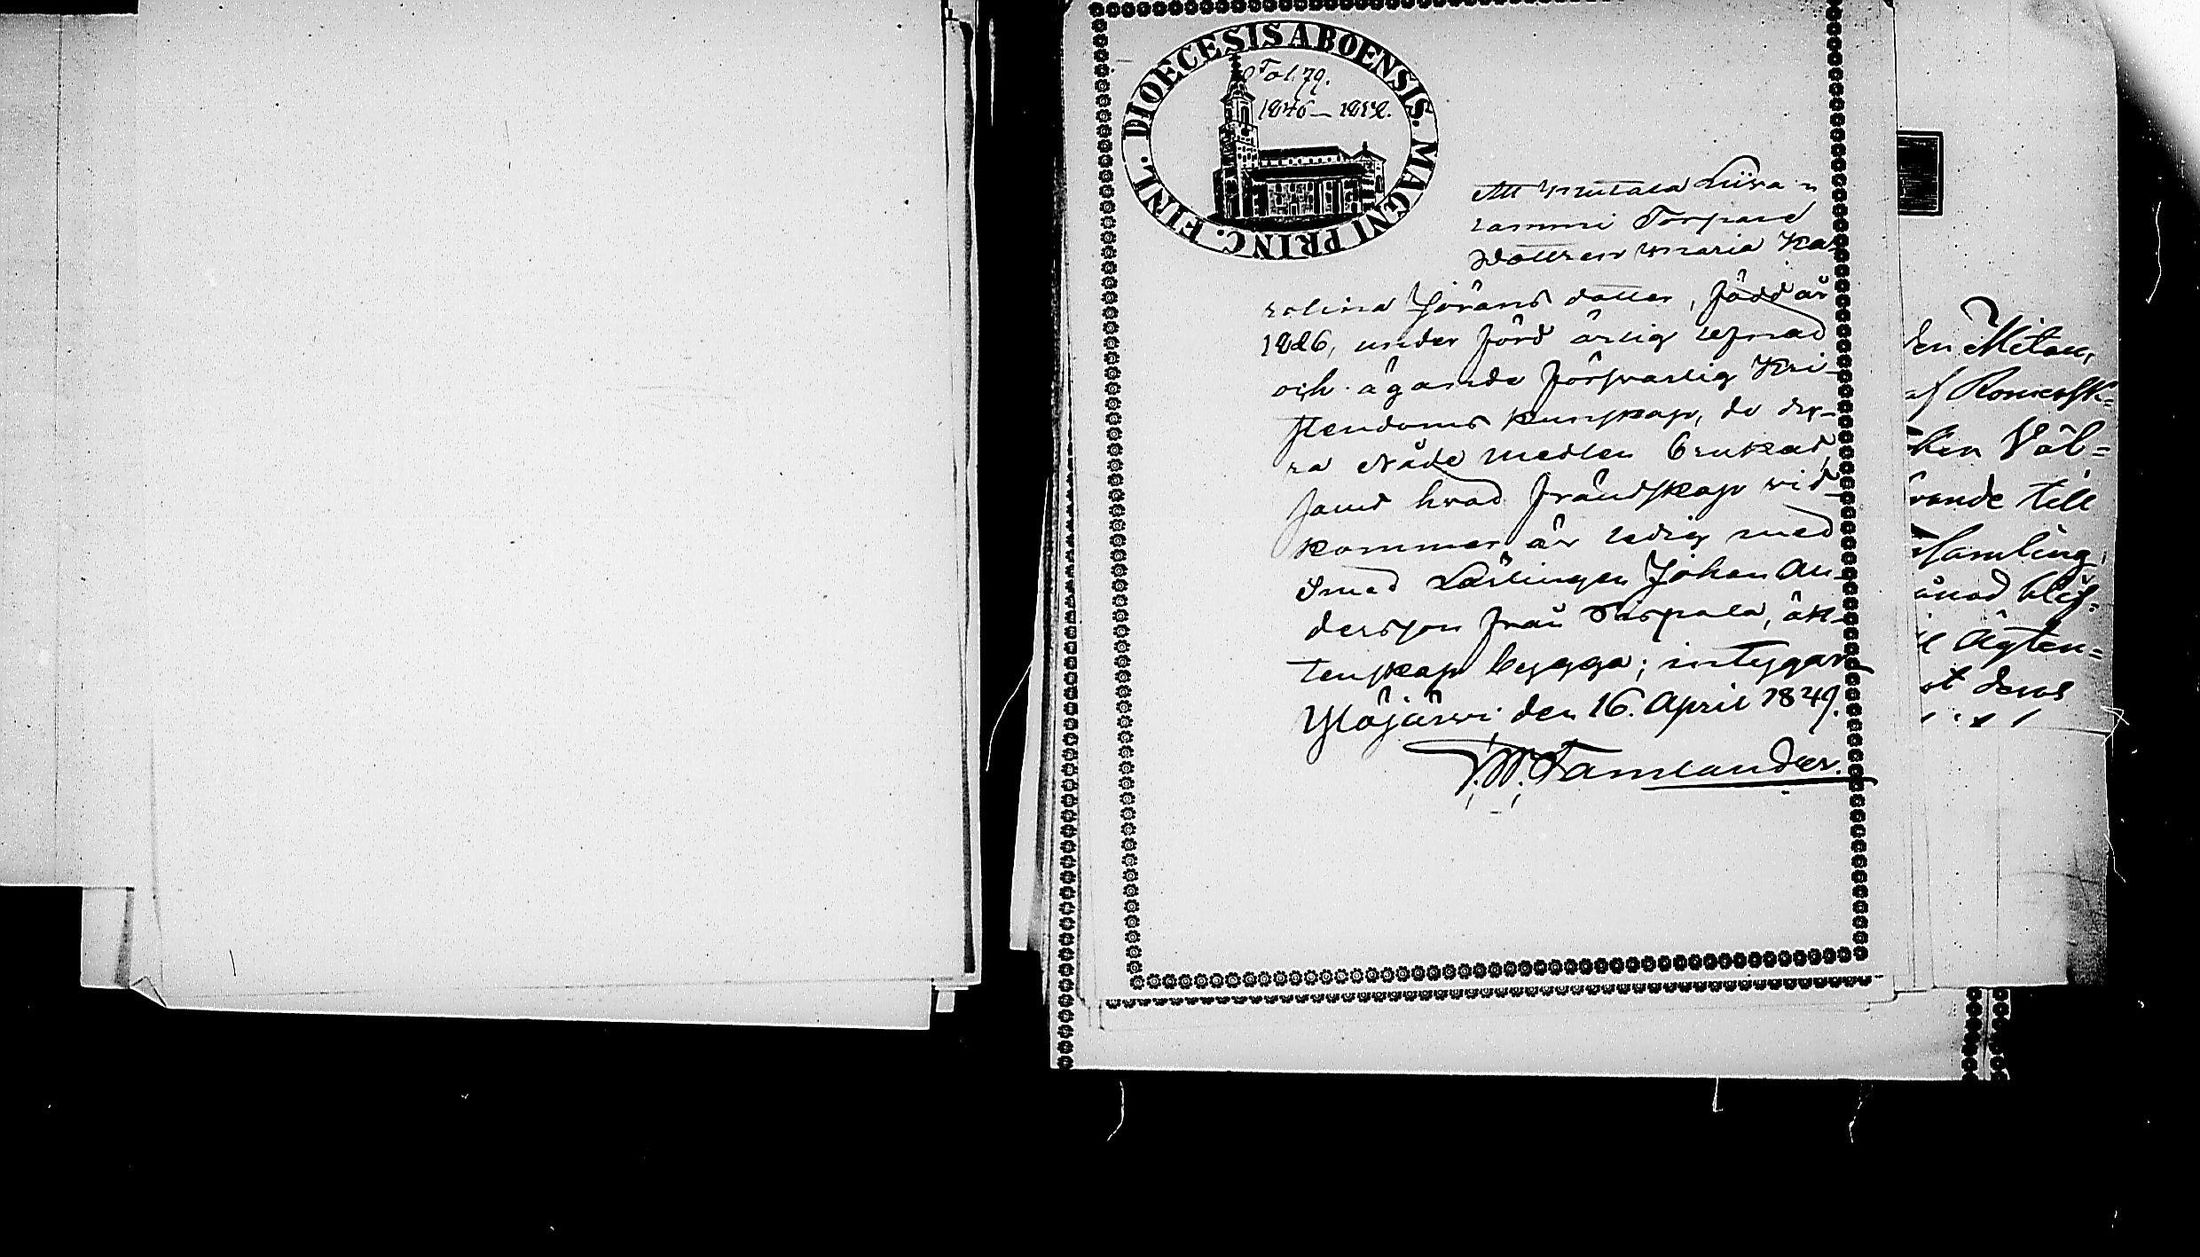 DIOECESIS ABOENSIS. MAGNI PRINC. FINL.
Fol. 79.
1846–1852.
Att Mutala Liusa
lammi Torpare
dottren Maria Ka-
rolina Jöransdotter, född år
1826, under förd ärlig lefnad
och ägande försvarlig Kri-
stendoms kunskap, de dy-
ra Nåde medlen brukad,
samt hvad frändskap vid
kommer är ledig med
Smed Lärlingen Johan An-
dersson från Parpala, äk-
tenskap bygga; intygar
Ylöjärvi den 16. April 1849.
F. W. Tamlander.
den Mitau,
af Romersk-
ken Väl-
rande till
samling
ånad blif-
Ägten-
t deras